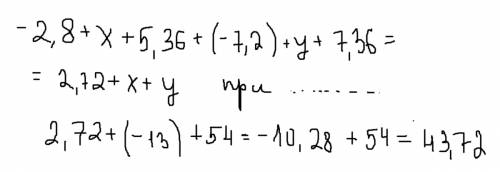 -2,8+x+5,36+(-7,2)+y+7,36=
=2,72+x+y при ........
2,72+(-13)+54=-10,28+54=43,72